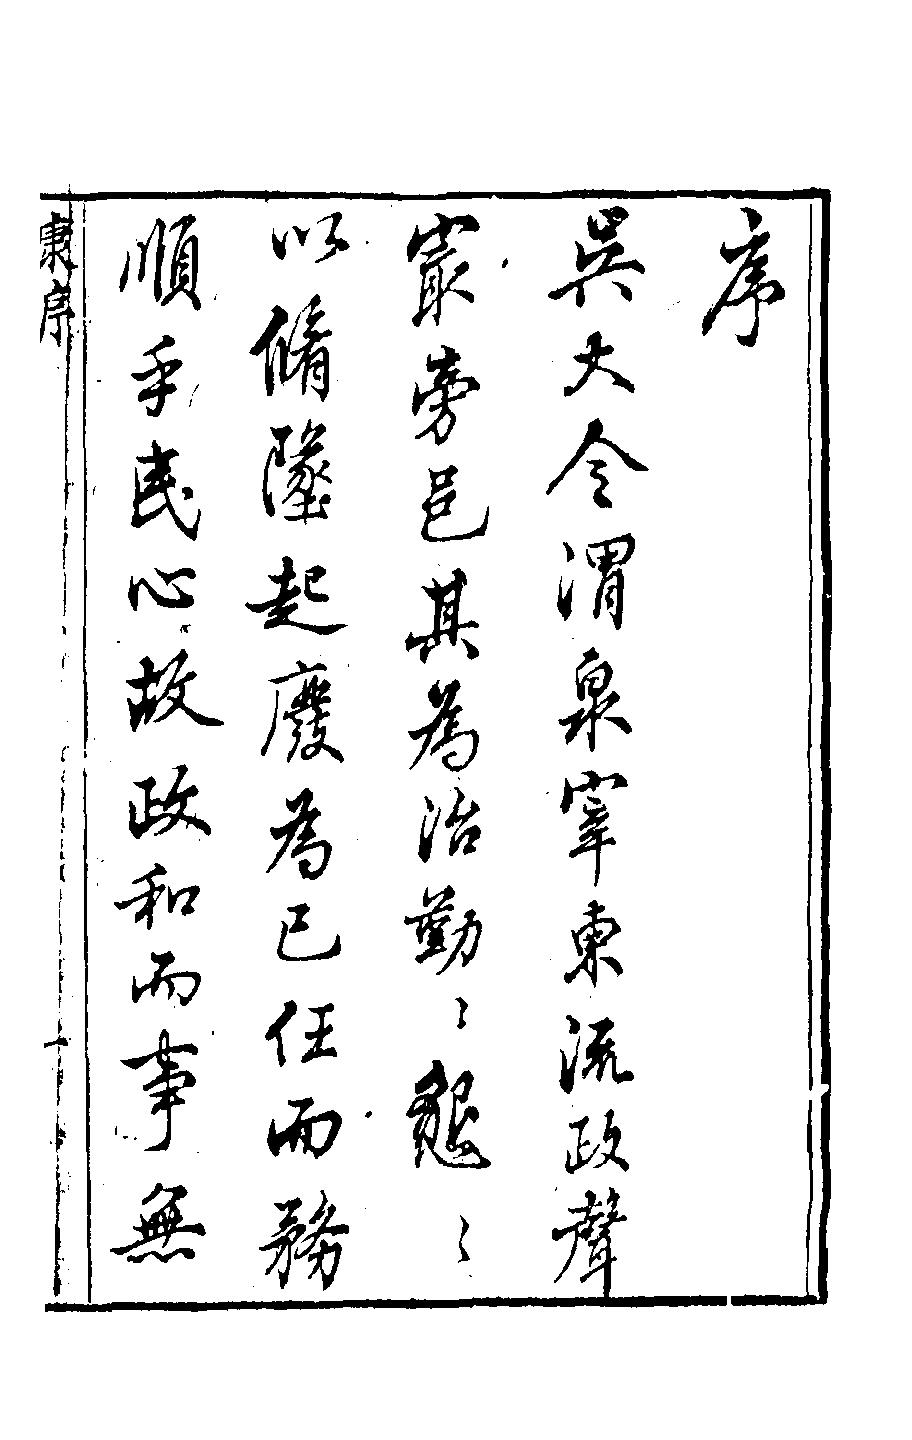 序
吳大令渭泉宰東流政聲
冣旁邑其為治勤〻懇〻
以脩墜起廢為已任而務
順乎民心故政和而事無
序
一